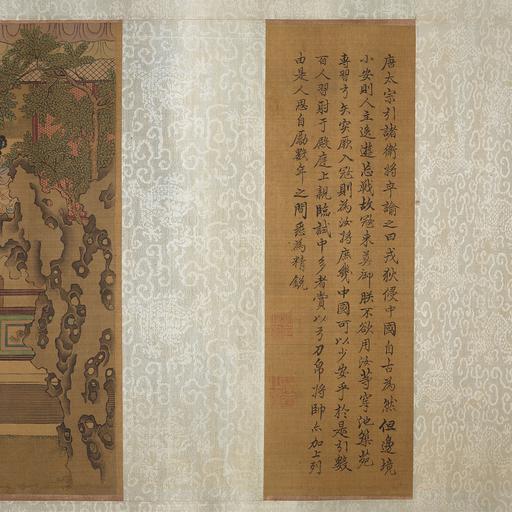 唐太宗引諸衛將卒諭之曰戎狄侵中國自古為然但邊境
小安則人主逸遊忘戰故寇來莫御朕不欲用汝等穿池築苑
專習弓矢突厥入寇則為汝將庶幾中國可以少安乎於是引數
百人習射于殿庭上親臨試中多者賞以弓刀帛將帥亦加上列
由是人思自勵數年之間悉為精銳